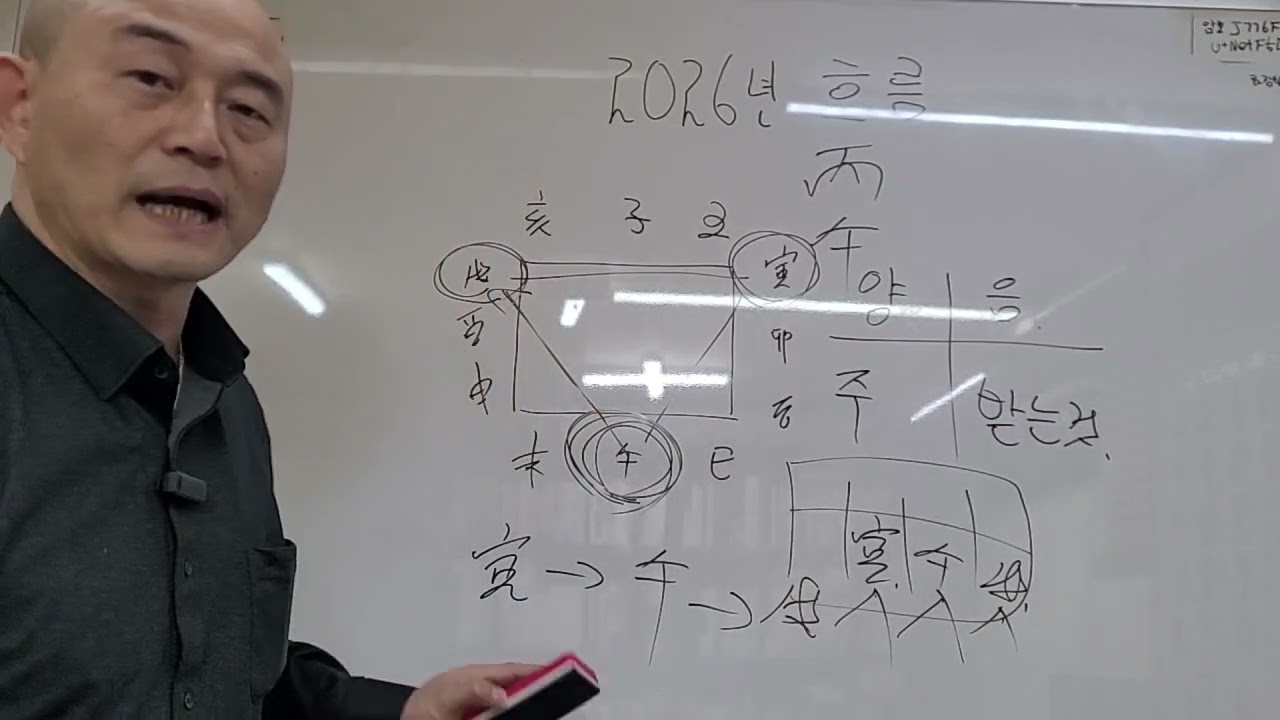 암호 J776F
U+Net
2026년 흐름
丙
午
亥 子 丑
戌 寅
酉 卯
申 辰
未 午 巳
양 음
주 받는것.
寅 午 戌
寅 → 午 → 戌